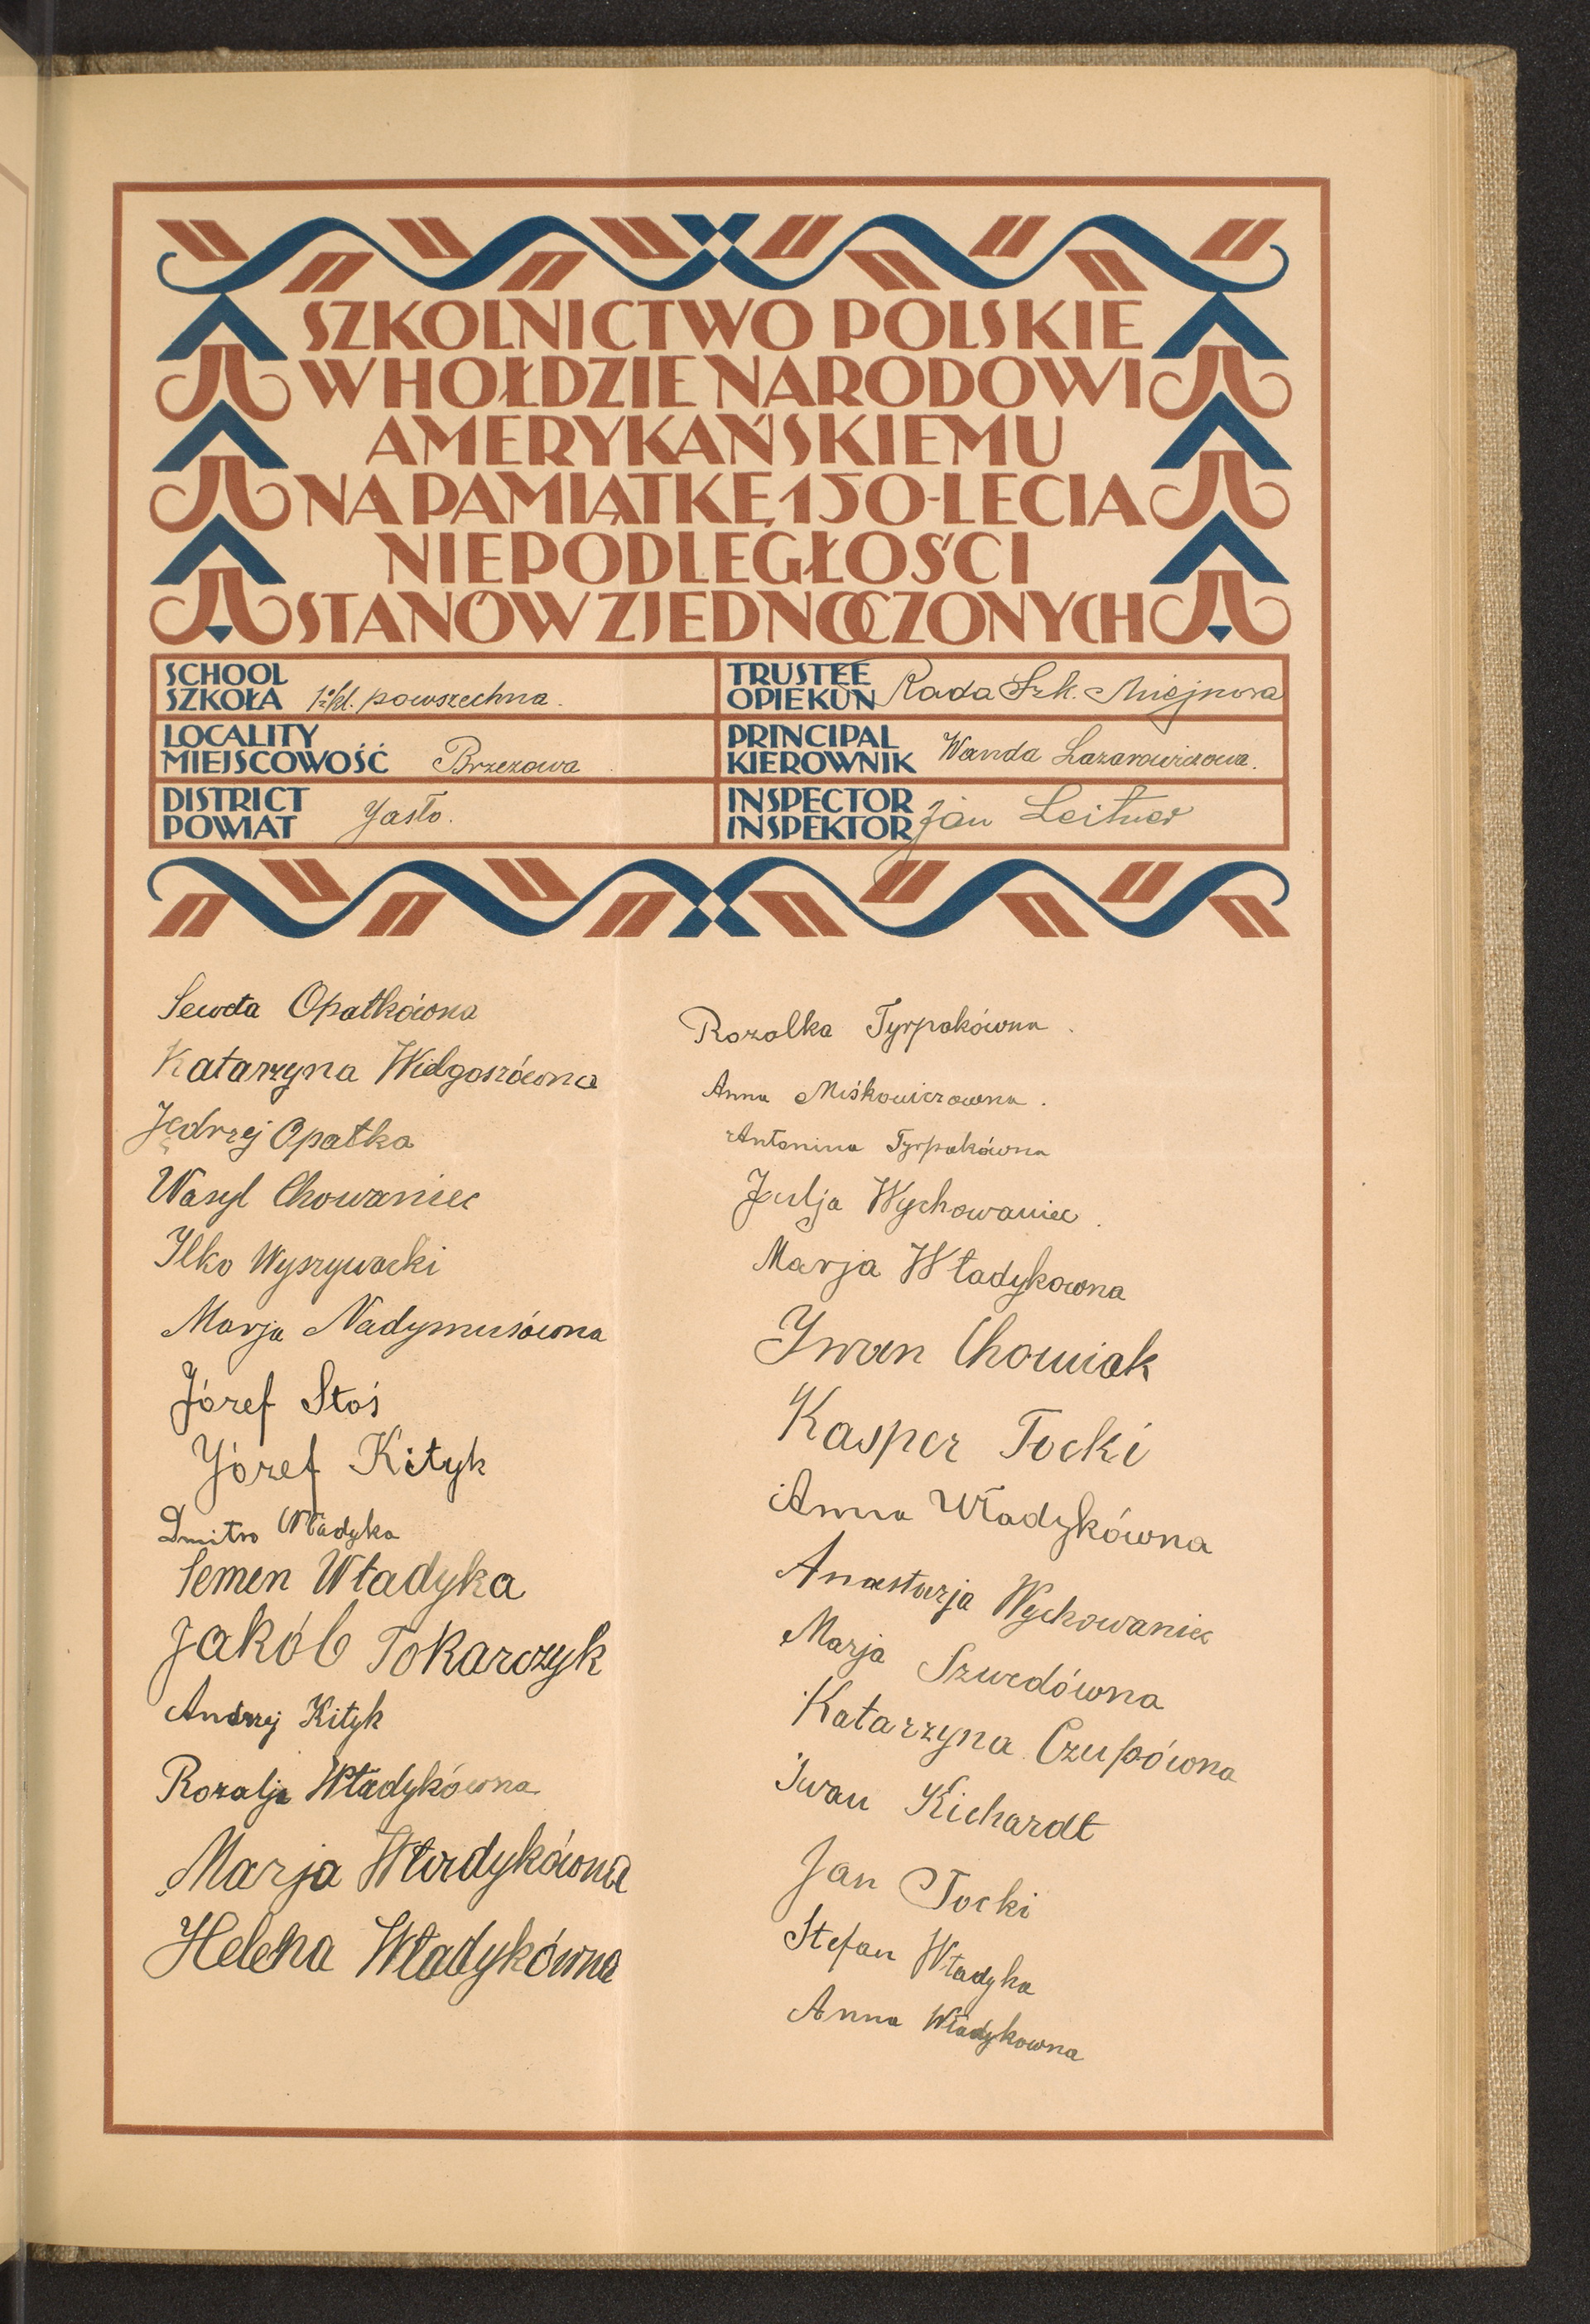 SZKOLNICTWO POLSKIE
W HOŁDZIE NARODOWI
AMERYKAŃSKIEMU
NA PAMIĄTKĘ 150-LECIA
NIEPODLEGŁOŚCI
STANÓW ZJEDNOCZONYCH
SCHOOL
SZKOŁA 1kl. powszechna.
LOCALITY
MIEJSCOWOŚĆ Brzezowa
DISTRICT
POWIAT Jasło.
TRUSTEE
OPIEKUN Rada Szk. Miejscowa
PRINCIPAL
KIEROWNIK Wanda Lazarowiczowa.
INSPECTOR
INSPEKTOR Jan Leitner
Seweta Opatkówna
Katarzyna Widgoszówna
Jędrzej Opatka
Wasyl Chowaniec
Ilko Wyszywacki
Marja Nadymusówna
Józef Stoś
Józef Kityk
Dmitro Władyka
Semen Władyka
Jakób Tokarczyk
Andrzej Kityk
Rozalja Władykówna
Marja Władykówna
Helena Władykówna
Rozalka Tyrpakówna.
Anna Miśkowiczowna.
Antonina Tyrpakówna
Julja Wychowaniec.
Marja Władykowna
Iwan Chowiak
Kasper Tocki
Anna Władykówna
Anastazja Wychowaniec
Marja Szwedówna
Katarzyna Czupówna
Iwan Kichardt
Jan Tocki
Stefan Władyka
Anna Władykowna